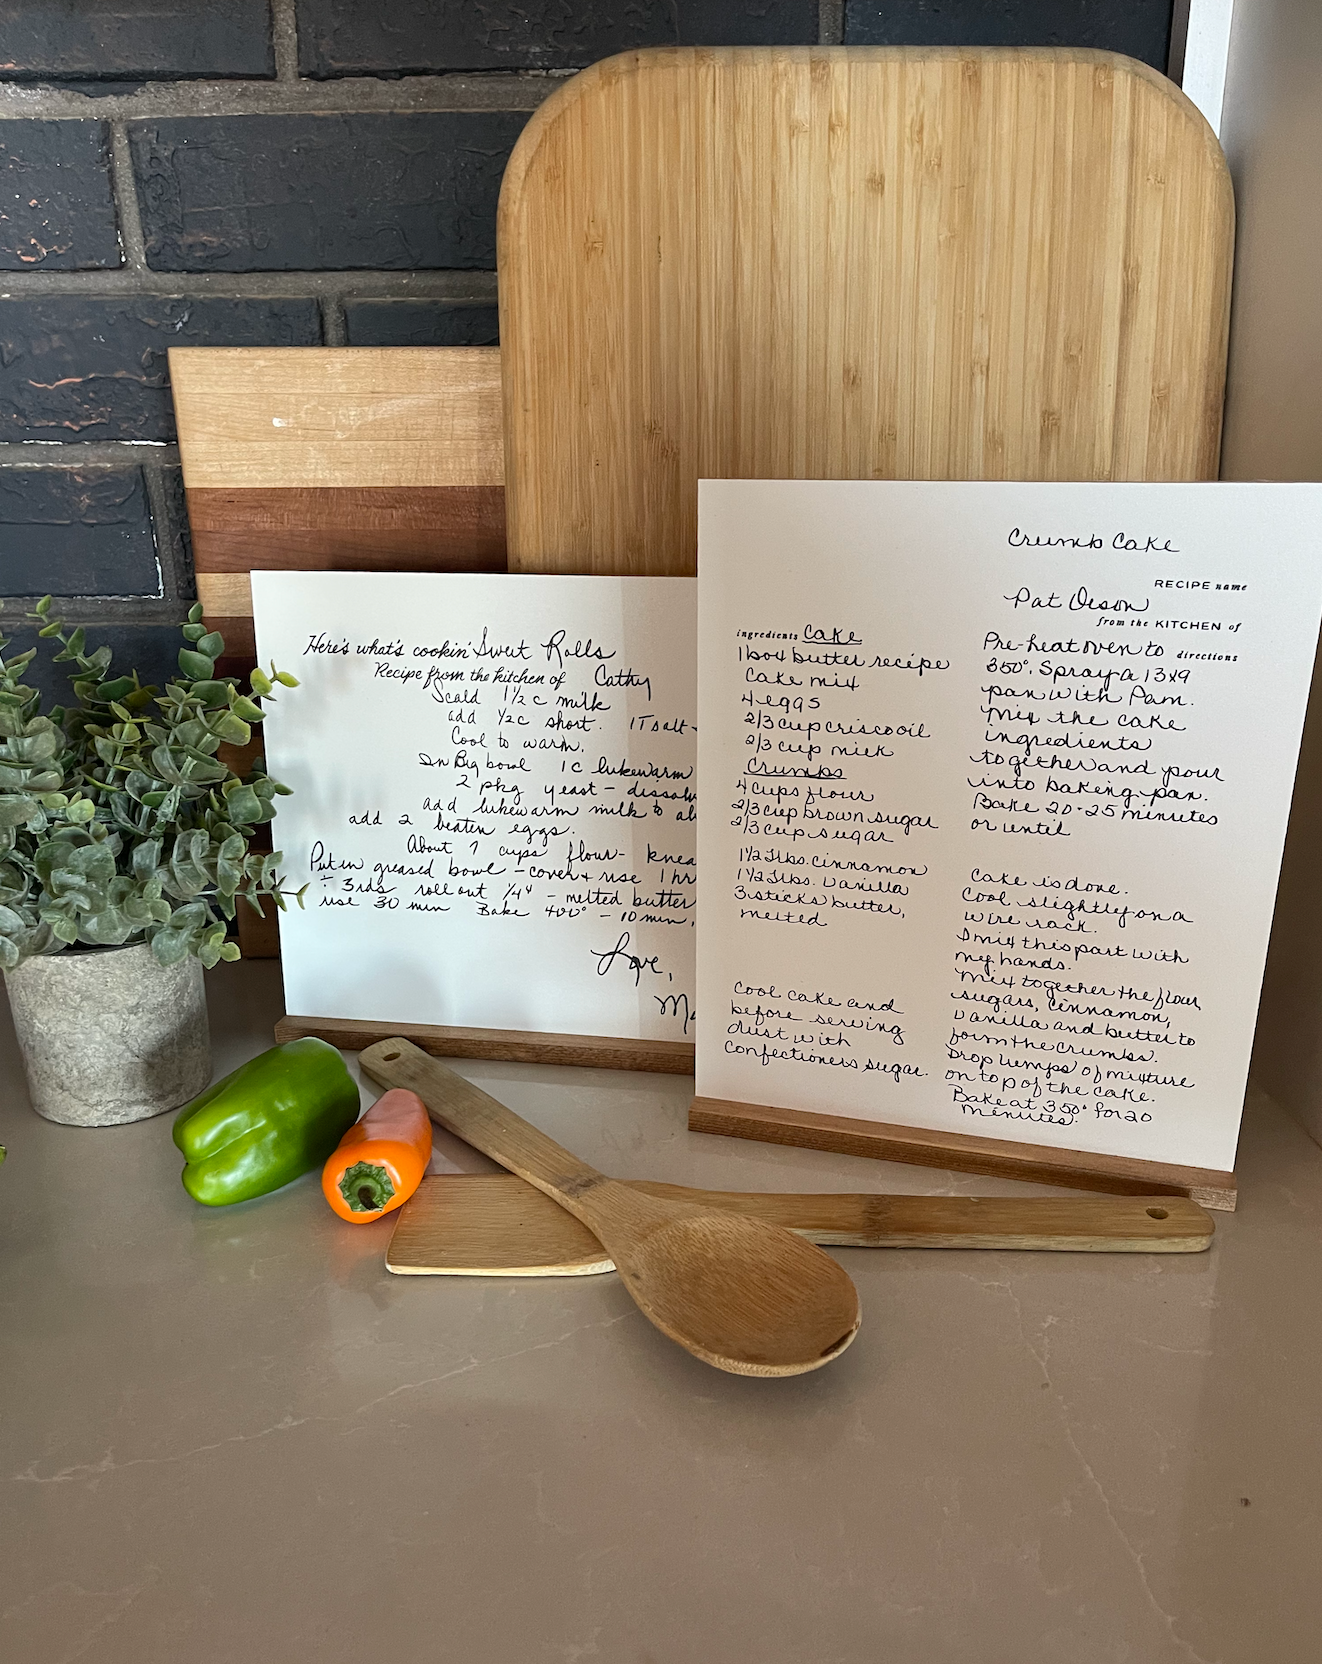 Here's what's cookin' Sweet Rolls
Recipe from the kitchen of Cathy
Scald 1½ c milk
add ½c short. 1T salt-
Cool to warm.
In Big bowl 1c lukewarm
2 pkg yeast - dissolv
add lukewarm milk to ab
add 2 beaten eggs.
About 7 cups flour- knea
Put in greased bowl - cover + rise 1 hr
÷ 3rds roll out ¼" - melted butter
rise 30 min Bake 400° - 10 min.
Love,
Crumb Cake
RECIPE name
Pat Olson
from the KITCHEN of
ingredients Cake
1 box butter recipe
cake mix
4 eggs
2/3 cup crisco oil
2/3 cup milk
Crumbs
4 cups flour
2/3 cup brown sugar
2/3 cup sugar
1½ Tbs. cinnamon
1½ Tbs. vanilla
3 sticks butter,
melted
Cool cake and
before serving
dust with
confectioners sugar.
Pre-heat oven to directions
350°. Spray a 13x9
pan with Pam.
Mix the cake
ingredients
together and pour
into baking pan.
Bake 20-25 minutes
or until
cake is done.
Cool slightly on a
wire rack.
I mix this part with
my hands.
Mix together the flour,
sugars, cinnamon,
vanilla and butter to
form the crumbs.
Drop lumps of mixture
on top of the cake.
Bake at 350° for 20
minutes.